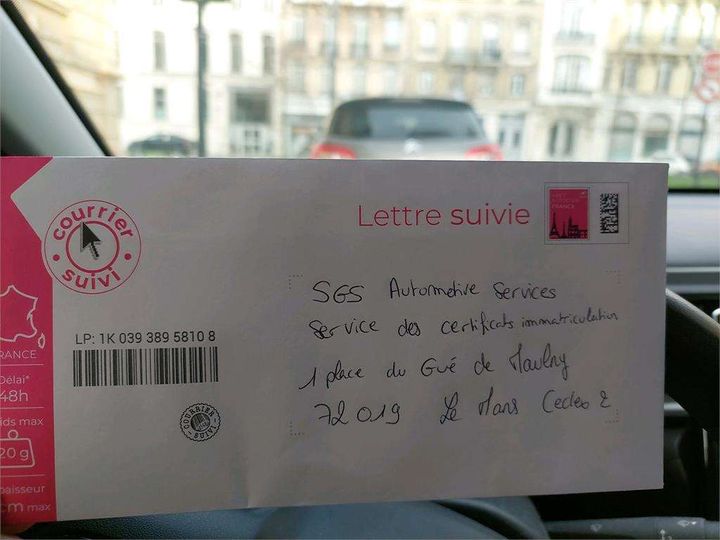 courrier
suivi
Lettre suivie
FRANCE
SGS Automotive Services
Service des certificats immatriculation
1 place du Gué de Maulny
72019 Le Mans Cedex 2
LP: 1K 039 389 5810 8
RANCE
Délai*
48h
ids max
20 g
paisseur
cm max
COURRIER
SUIVI